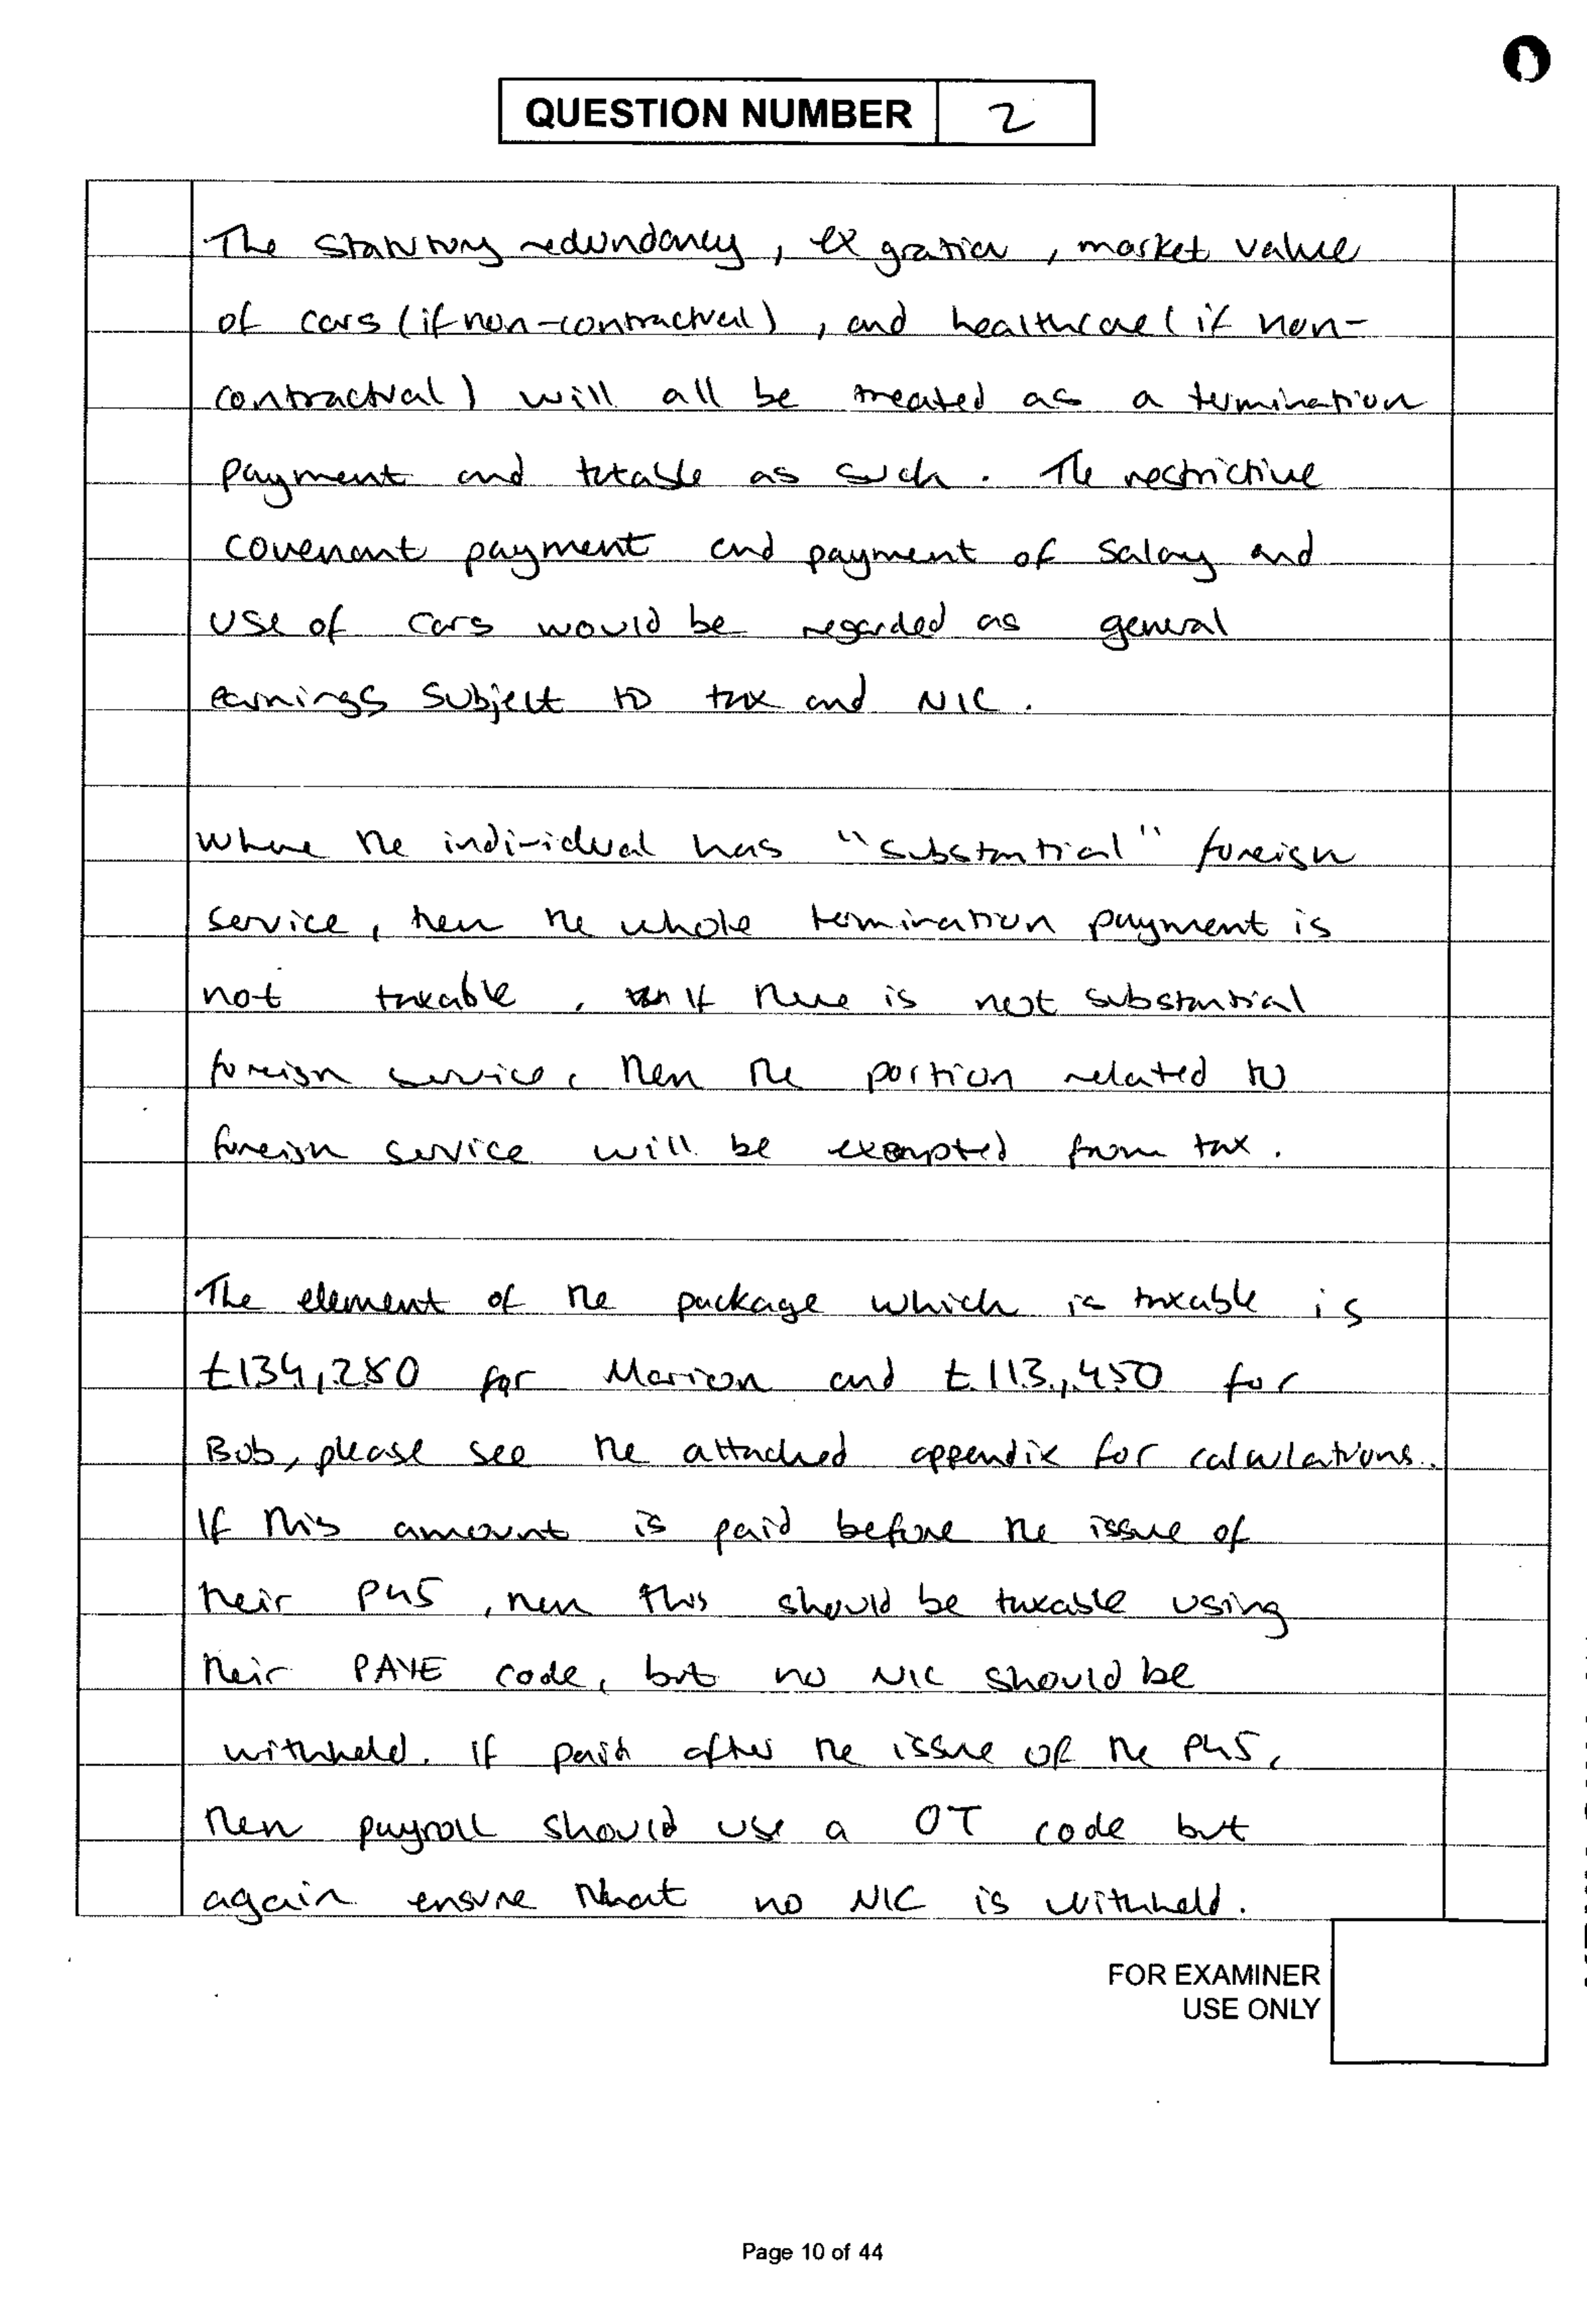 QUESTION NUMBER 2
The statutory redundancy, ex gratia, market value
of cars (if non-contractual), and healthcare (if non-
contractual) will all be treated as a termination
payment and taxable as such. The restrictive
covenant payment and payment of salary and
use of cars would be regarded as general
earnings subject to tax and NIC.
Where the individual has "substantial" foreign
service, then the whole termination payment is
not taxable. If there is not substantial
foreign service, then the portion related to
foreign service will be exempted from tax.
The element of the package which is taxable is
£134,280 for Marion and £113,450 for
Bob, please see the attached appendix for calculations.
If this amount is paid before the issue of
their P45, then this should be taxable using
their PAYE code, but no NIC should be
withheld. If paid after the issue of the P45,
then payroll should use a OT code but
again ensure that no NIC is withheld.
FOR EXAMINER
USE ONLY
Page 10 of 44